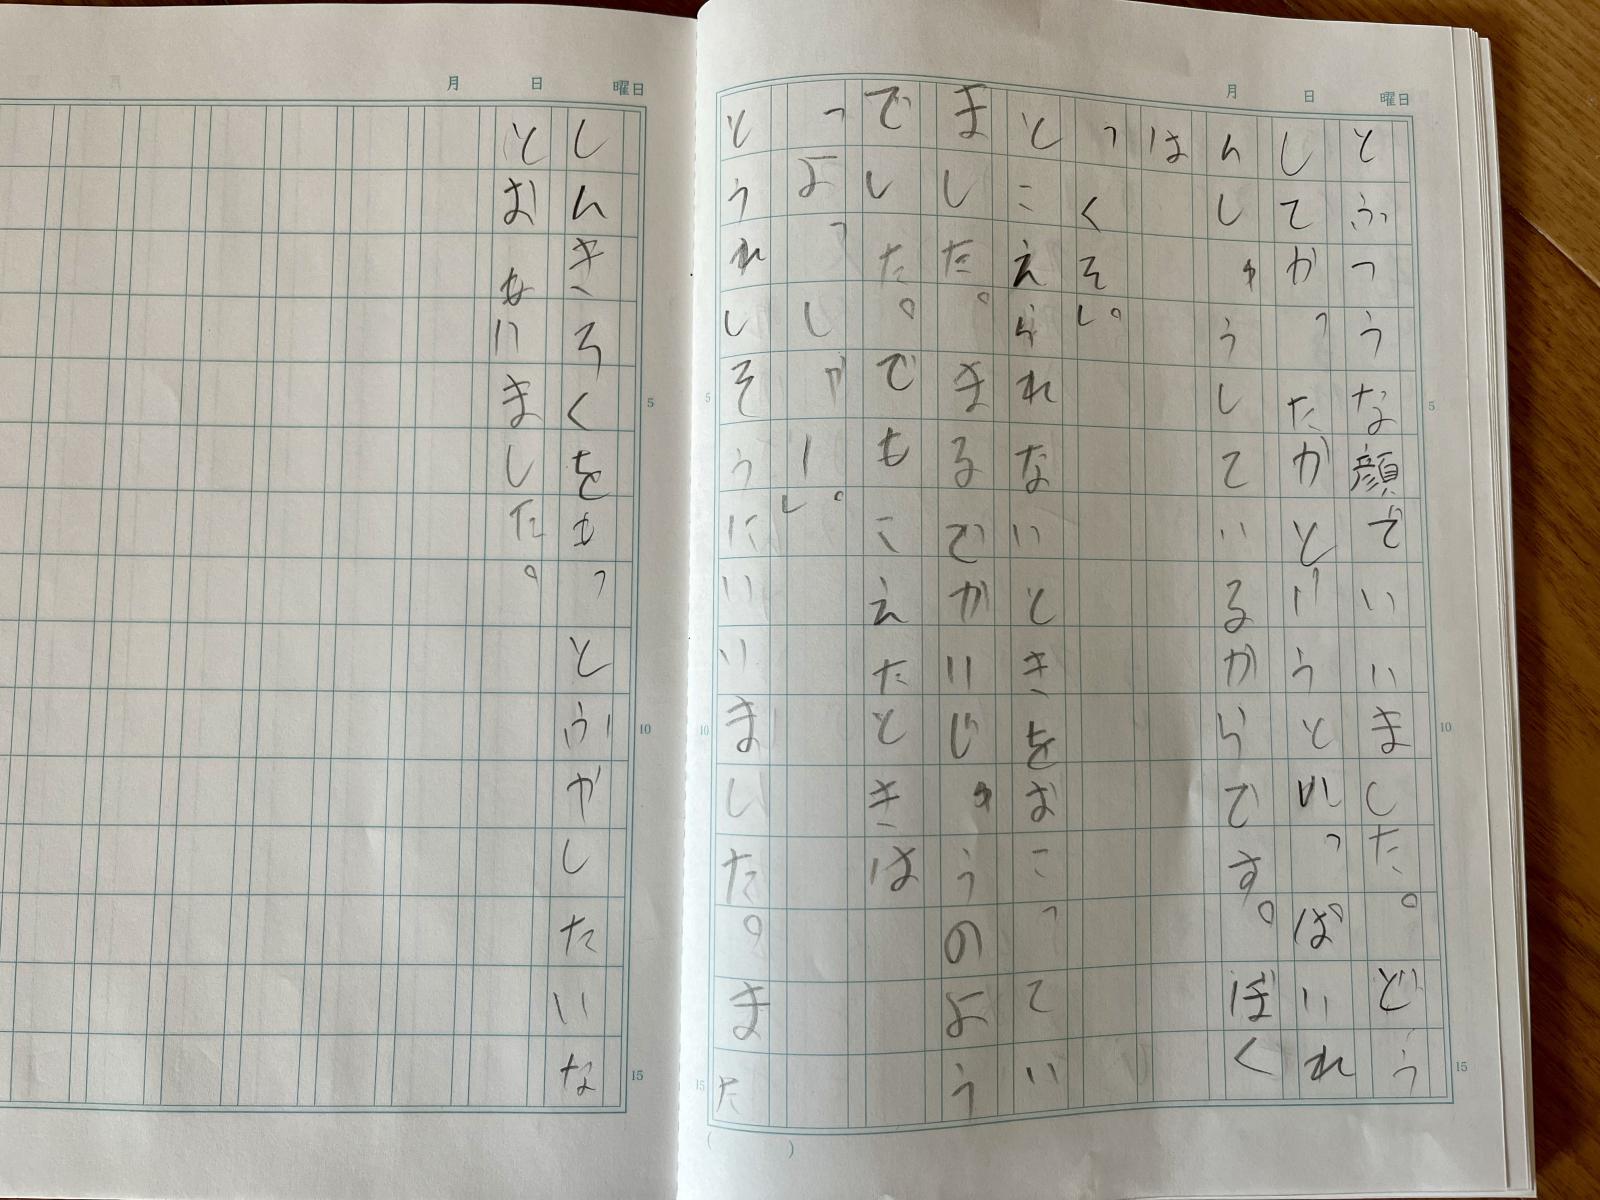 月 日 曜日
とふつうな顔でいいました。どう
してかったかというといっぱいれ
んしゅうしているからです。ぼく
は
「くそ」。
とこえられないときをおこってい
ました。まるでかいじゅうのよう
でした。でもこえたときは
「よっしゃー」。
とうれしそうにいいました。また
5
10
15
5
10
15
月 日 曜日
しんきろくをもっとふやしたいな
とおもいました。
5
10
15